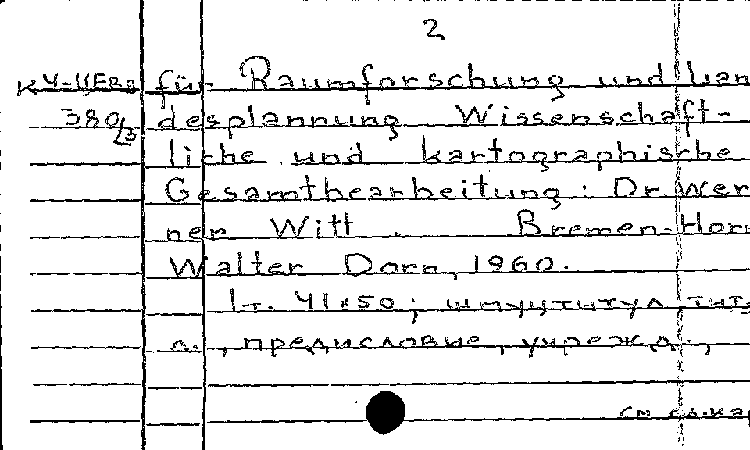 2
für Raumforschung und Lan
380/3 desplannung Wissenschaft-
liche und kartographische
Gesamtbearbeitung: Dr Wer
ner Witt. Bremen-Horn
Walter Dorn, 1960.
1т. 41x50; шмуцтитул, тит.
л., предисловие, учрежд.,
см сл.кар